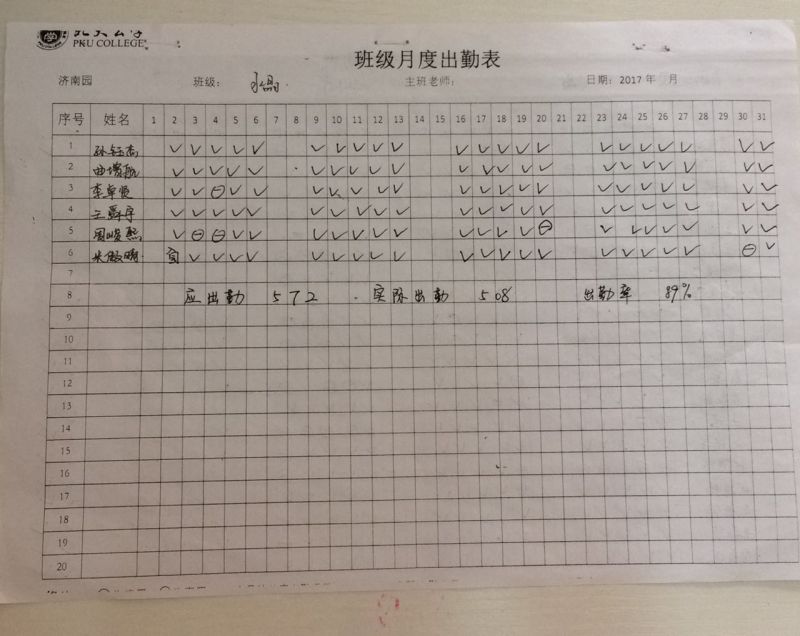 PKU COLLEGE
班级月度出勤表
济南园 班级: 主班老师: 日期: 2017 年 月
序号 姓名 1 2 3 4 5 6 7 8 9 10 11 12 13 14 15 16 17 18 19 20 21 22 23 24 25 26 27 28 29 30 31
1 孙钰杰 √ √ √ √ √ √ √ √ √ √ √ √ √ √ √ √ √ √ √ √ √ √
2 √ √ √ √ √ √ √ √ √ √ √ √ √ √ √ √ √ √ √ √ √ √
3 李卓 √ √ ⊖ √ √ √ √ √ √ √ √ √ √ √ √ √ √ √ √ √ √ √
4 王爵宇 √ √ √ √ √ √ √ √ √ √ √ √ √ √ √ √ √ √ √ √ √ √
5 周峻熙 √ ⊖ ⊖ √ √ √ √ √ √ √ √ √ √ √ ⊖ √ √ √ √ √ √ √
6 √ √ √ √ √ √ √ √ √ √ √ √ √ √ √ √ √ √ √ ⊖ √
7
8 应出勤 572 . 实际出勤 508 出勤率 89%
9
10
11
12
13
14
15
16
17
18
19
20